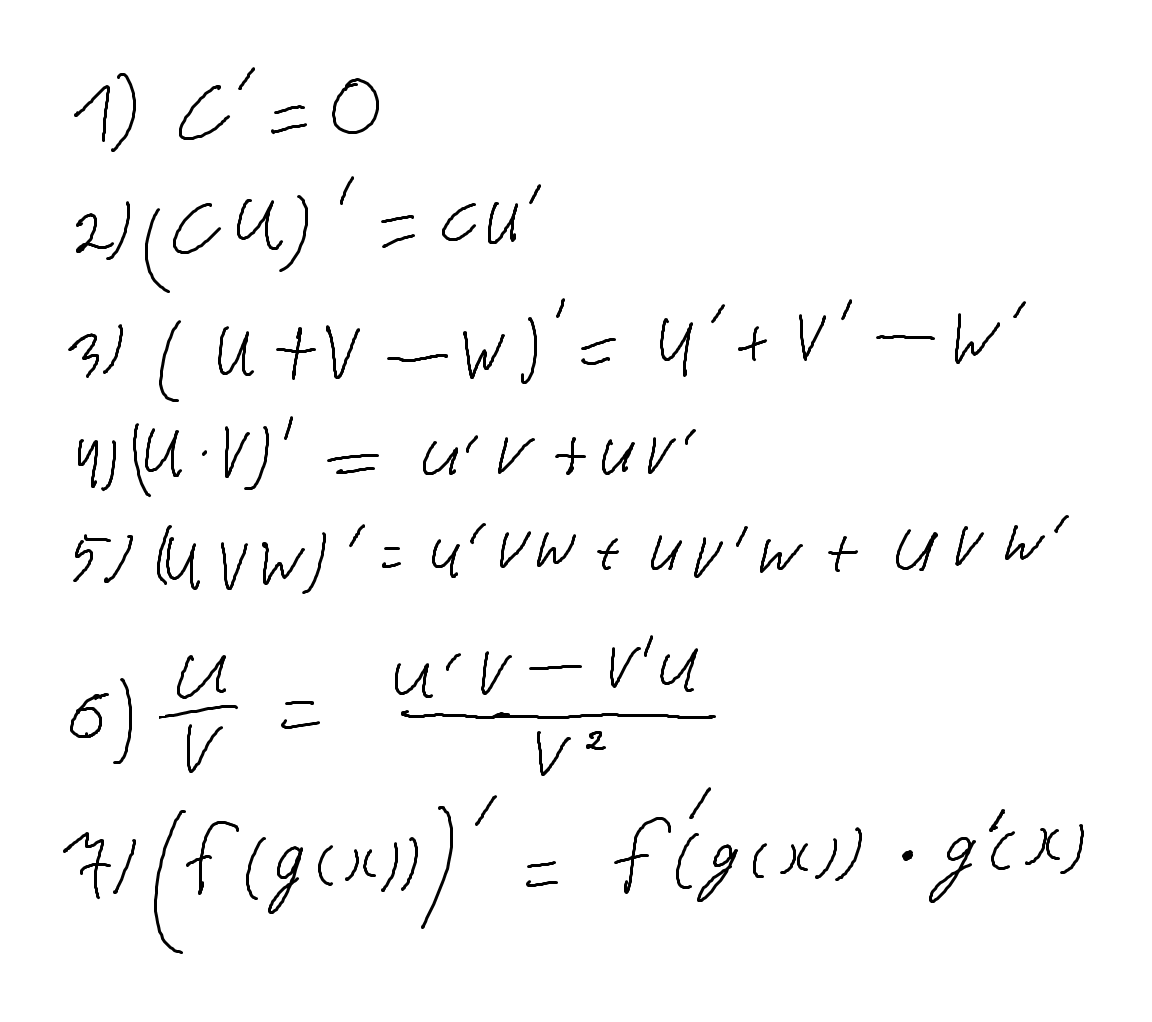 1) C' = 0
2) (CU)' = CU'
3) (U + V — W)' = U' + V' — W'
4) (U · V)' = U'V + UV'
5) (UVW)' = U'VW + UV'W + UVW'
6) U/V = (U'V — V'U)/V²
7) (f(g(x)))' = f'(g(x)) · g'(x)